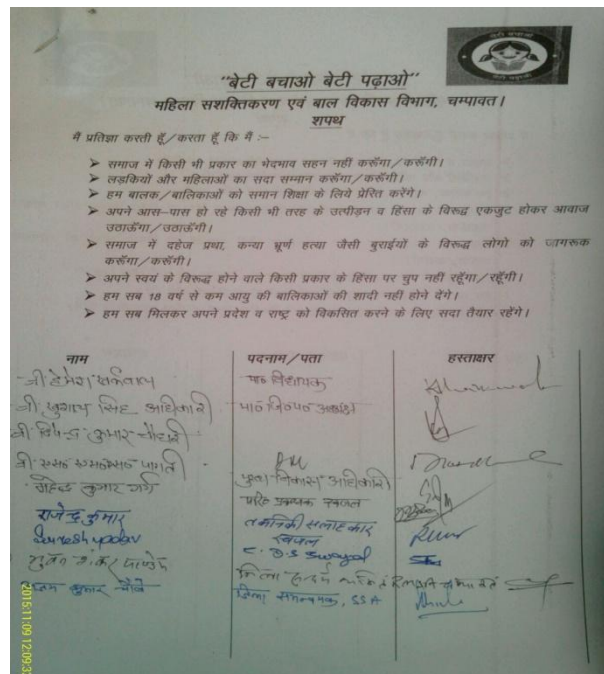 बेटी बचाओ
बेटी पढ़ाओ
“बेटी बचाओ बेटी पढ़ाओ”
महिला सशक्तिकरण एवं बाल विकास विभाग, चम्पावत।
शपथ
मैं प्रतिज्ञा करती हूँ/करता हूँ कि मैं :–
➤ समाज में किसी भी प्रकार का भेदभाव सहन नहीं करूँगा/करूँगी।
➤ लड़कियों और महिलाओं का सदा सम्मान करूँगा/करूँगी।
➤ हम बालक/बालिकाओं को समान शिक्षा के लिये प्रेरित करेंगे।
➤ अपने आस–पास हो रहे किसी भी तरह के उत्पीड़न व हिंसा के विरूद्ध एकजुट होकर आवाज
उठाऊँगा/उठाऊँगी।
➤ समाज में दहेज प्रथा, कन्या भ्रूर्ण हत्या जैसी बुराईयों के विरूद्ध लोगो को जागरूक
करूँगा/करूँगी।
➤ अपने स्वयं के विरूद्ध होने वाले किसी प्रकार के हिंसा पर चुप नहीं रहूँगा/रहूँगी।
➤ हम सब 18 वर्ष से कम आयु की बालिकाओं की शादी नहीं होने देंगे।
➤ हम सब मिलकर अपने प्रदेश व राष्ट्र को विकसित करने के लिए सदा तैयार रहेंगे।
नाम पदनाम/पता हस्ताक्षर
श्री हेमेश खर्कवाल मा० विधायक
श्री खुशाल सिंह अधिकारी मा० जि०पं० अध्यक्ष
श्री कुमार चौधरी
श्री DM
महेन्द्र कुमार मुख्य विकास अधिकारी
राजेन्द्र कुमार तकनिकी सलाहकार
स्वजल
Suresh yadav C.D.S Swajal
भुवन शंकर पाण्डेय
कुमार चौबे जिला समन्वयक, SSA